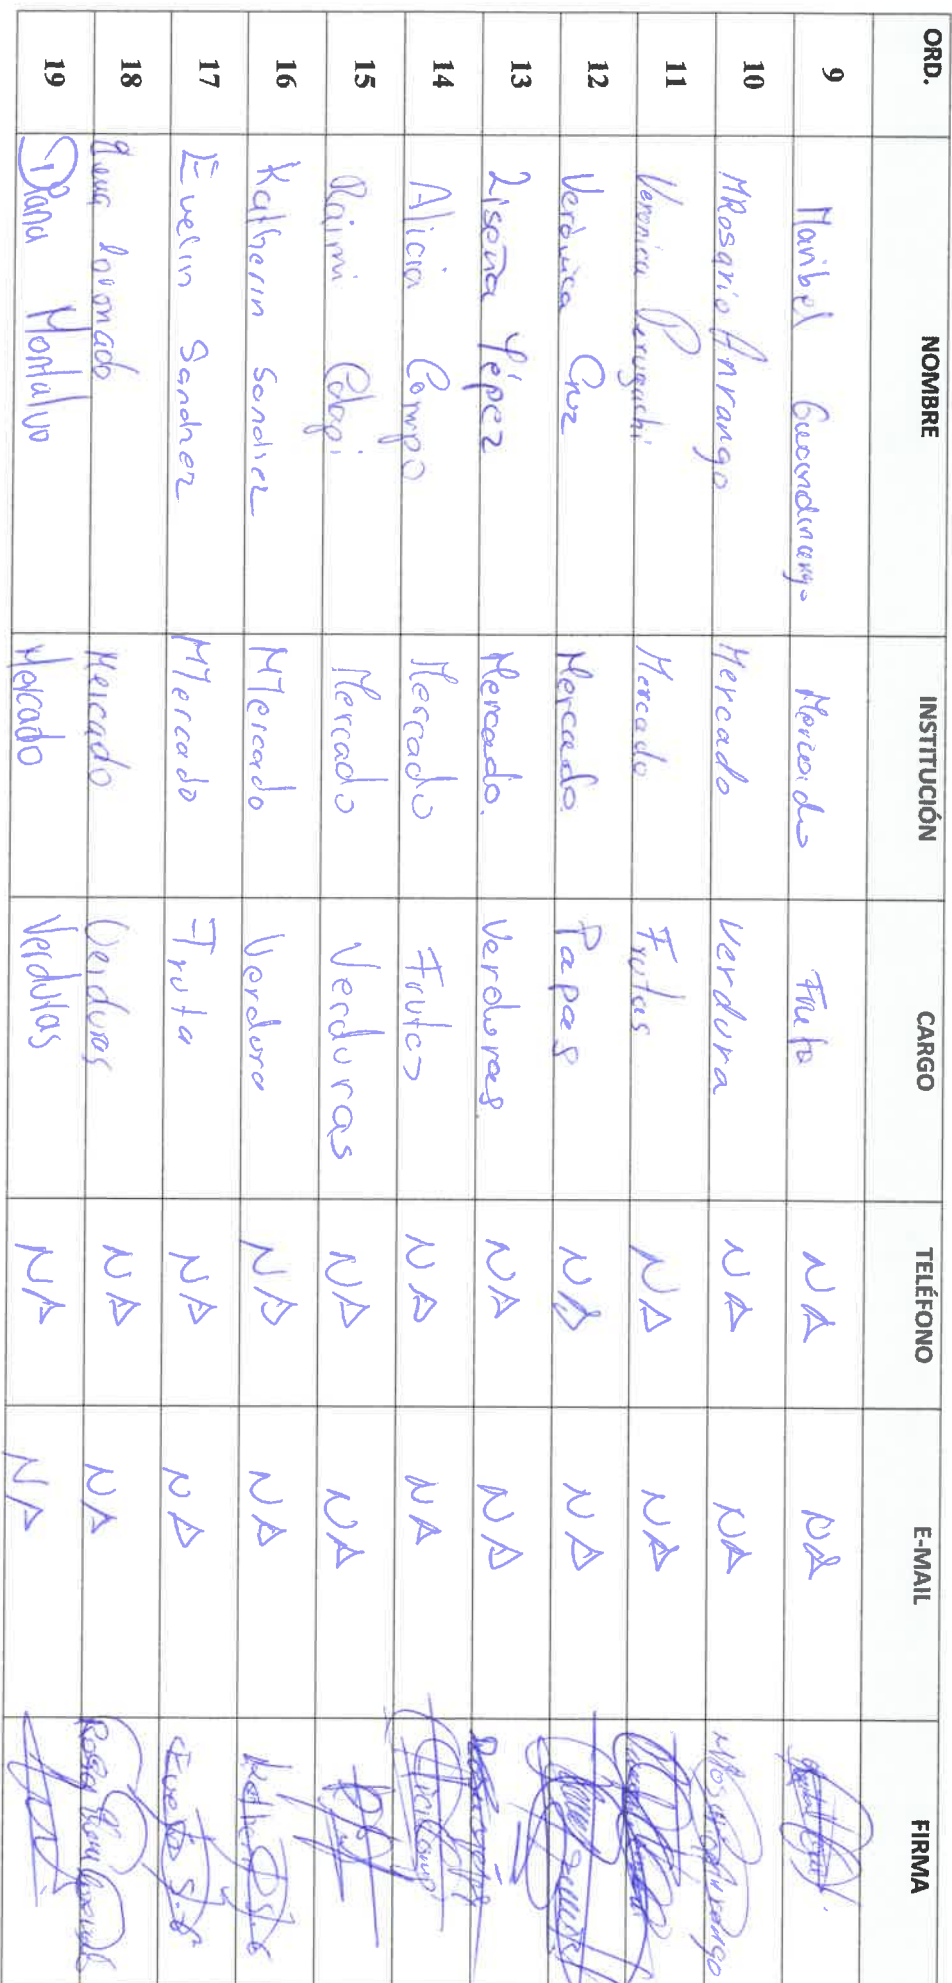 ORD. NOMBRE INSTITUCIÓN CARGO TELÉFONO E-MAIL FIRMA
9 Maribel Mercado Fruta NA NA
10 MRosario Anrango Mercado Verdura NA NA MRosario Anrango
11 Veronica Perugachi Mercado Frutas NA NA
12 Verònica Cruz Mercado. Papas NA NA
13 Yépez Mercado. Verduras. NA NA
14 Alicia Campo Mercado Frutas NA NA
15 Mercado Verduras NA NA
16 Katherin Sanchez Mercado Verdura NA NA
17 Evelin Sanchez Mercado Fruta NA NA
18 Mercado Verduras NA NA
19 Diana Montalvo Mercado Verduras NA NA